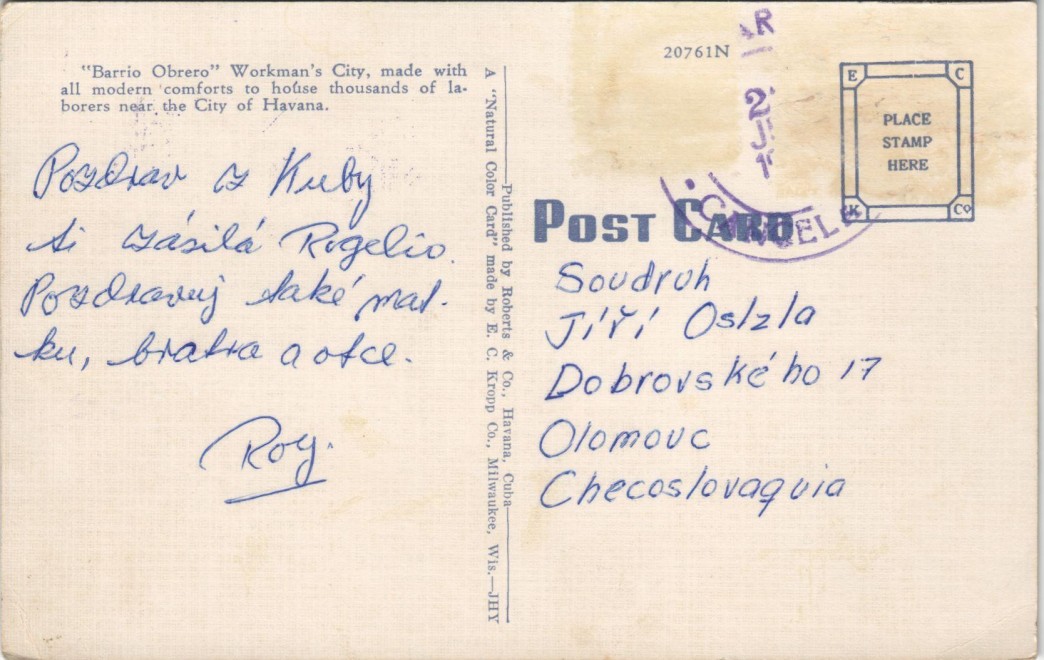 "Barrio Obrero" Workman's City, made with
all modern comforts to house thousands of la-
borers near the City of Havana.
Pozdrav z Kuby
ti zásilá Rogelio.
Pozdravuj také mat-
ku, bratra a otce.
Roy.
A "Natural Color Card" made by E. C. Kropp Co., Milwaukee, Wis.—JHY
Published by Roberts & Co., Havana, Cuba
20761N
E C
PLACE
STAMP
HERE
K Co
POST CARD
Soudruh
Jíří Oslzla
Dobrovského 17
Olomouc
Checoslovaquia